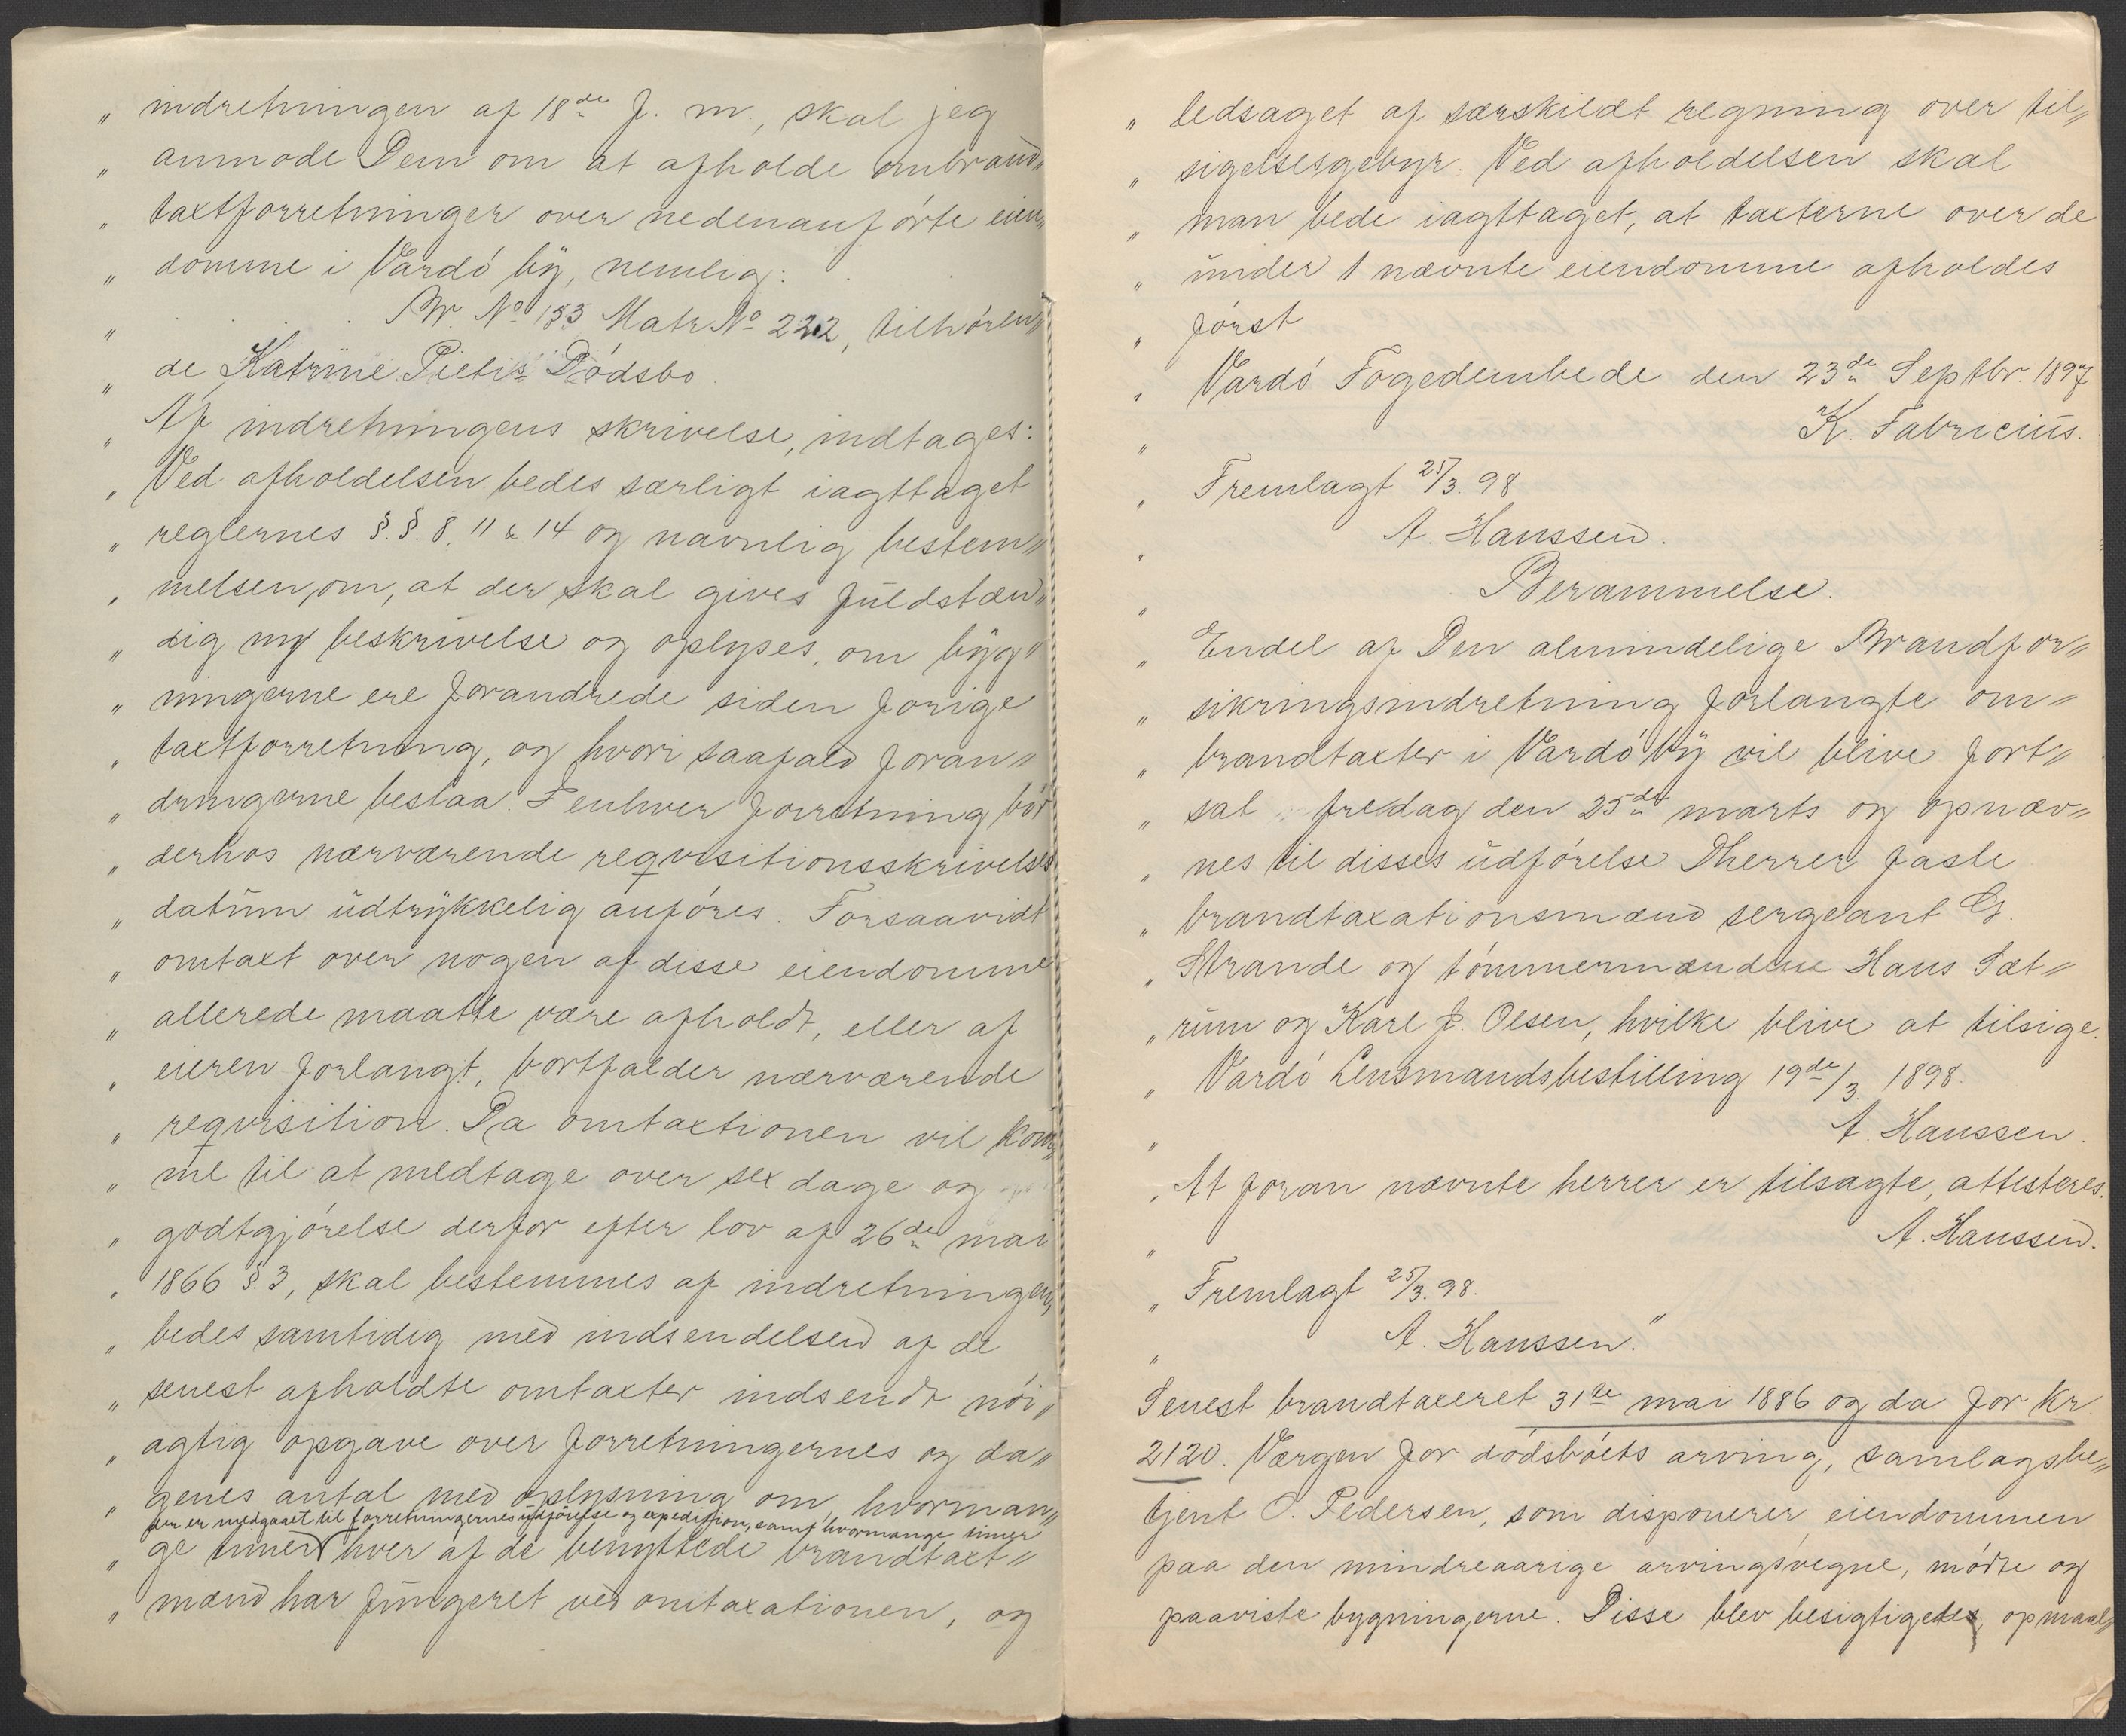 „ indretningen af 18de f. m., skal jeg
„ anmode Dem om at afholde ombrand„
„ taxtforretninger over nedenanførte eien„
„ domme i Vardö by, nemlig:
„ Br. No 133 Matr No 222, tilhören„
„ de Katrine Pietis Dödsbo.
„ Af indretningens skrivelse, indtages:
„ Ved afholdelsen bedes særligt iagttaget
„ reglernes §.§. 8, 11 & 14 og navnlig bestem„
„ melsen, om, at der skal gives fuldstæn„
„ dig ny beskrivelse og oplyses, om byg„
„ ningerne ere forandrede siden forige
„ taxtforretning, og hvori saafald foran„
„ dringerne bestaa. I enhver forretning bör
„ derhos nærværende reqvisitionsskrivelses
„ datum udtrykkelig anføres. Forsaavidt
„ omtaxt over nogen af disse eiendomme
„ allerede maatte være afholdt, eller af
„ eieren forlangt, bortfalder nærværende
„ reqvisition. Da omtaxtionen vil kom„
„ me til at medtage over sex dage og
„ godtgjörelse derfor efter lov af 26de mai
„ 1866 §. 3, skal bestemmes af indretningen,
„ bedes samtidig med indsendelsen af de
„ senest afholdte omtaxter indsendt nöi„
„ agtig opgave over forretningernes og da„
„ genes antal med oplysning om, hvorman„
der er medgaaet til forretningernes udförelse og expedition, samt hvormange timer
„ ge timer hver af de benyttede brandtaxt„
„ mænd har fungeret ved omtaxationen, og
„ ledsaget af særskildt regning over til„
„ sigelsesgebyr. Ved afholdelsen skal
„ man bede iagttaget, at taxterne over de
„ under 1 nævnte eiendomme afholdes
„ först
„ Vardö Fogedembede den 23de Septbr. 1897
„ K. Fabricius.
„ Fremlagt 25/3. 98
„ A. Hanssen.
„ Berammelse.
„ Endel af Den almindelige Brandfor„
„ sikringsindretning forlangte om„
„ brandtaxter i Vardö by vil blive fort„
„ sat fredag den 25de marts og opnæv„
„ nes til disses udförelse Dherrer faste
„ brandtaxationsmænd sergeant G.
„ Strande og tömmermændene Hans Sæt„
„ rum og Karl J. Olsen, hvilke blive at tilsige.
„ Vardö Lensmandsbestilling 19de/3. 1898.
„ A. Hanssen.
„ At foran nævnte herrer er tilsagte, attesteres.
„ A. Hanssen.
„ Fremlagt 25/3. 98.
„ A. Hanssen.“
Senest brandtaxeret 31te mai 1886 og da for kr.
2120. Værgen for dödsböets arving, samlagsbe„
tjent O. Pedersen, som disponerer eiendommen
paa den mindreaarige arvings vegne, mødte og
paaviste bygningerne. Disse blev besigtigede, opmaal„